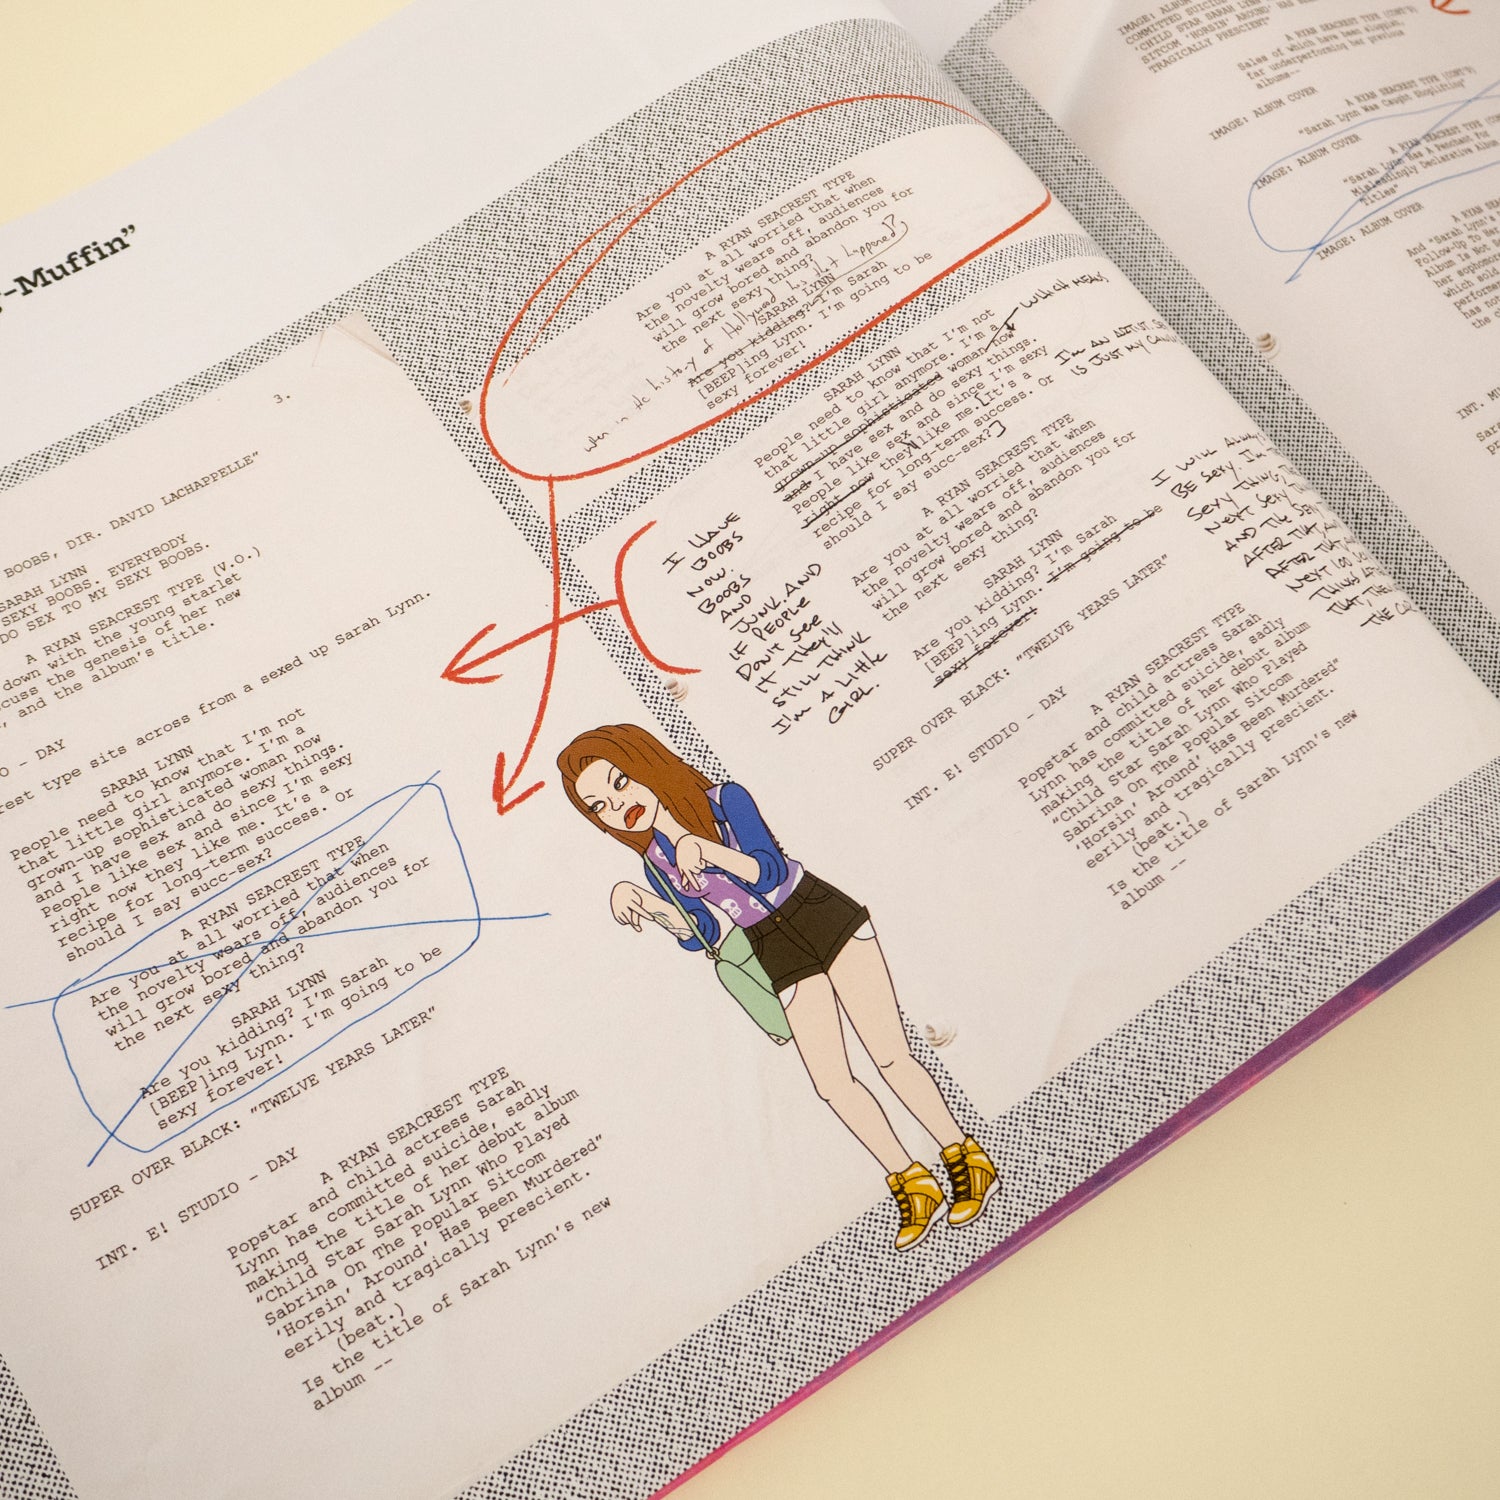 -Muffin”
3.
BOOBS, DIR. DAVID LACHAPELLE”
SARAH LYNN
SEXY BOOBS. EVERYBODY
DO SEX TO MY SEXY BOOBS.
A RYAN SEACREST TYPE (V.O.)
down with the young starlet
the genesis of her new
and the album's title.
- DAY
type sits across from a sexed up Sarah Lynn.
SARAH LYNN
People need to know that I'm not
that little girl anymore. I'm a
grown-up sophisticated woman now
and I have sex and do sexy things.
People like sex and since I'm sexy
right now they like me. It's a
recipe for long-term success. Or
should I say succ-sex?
A RYAN SEACREST TYPE
Are you at all worried that when
the novelty wears off, audiences
will grow bored and abandon you for
the next sexy thing?
SARAH LYNN
Are you kidding? I'm Sarah
[BEEP]ing Lynn. I'm going to be
sexy forever!
SUPER OVER BLACK: "TWELVE YEARS LATER”
INT. E! STUDIO - DAY
A RYAN SEACREST TYPE
Popstar and child actress Sarah
Lynn has committed suicide, sadly
making the title of her debut album
“Child Star Sarah Lynn Who Played
Sabrina On The Popular Sitcom
‘Horsin’ Around’ Has Been Murdered”
eerily and tragically prescient.
(beat.)
Is the title of Sarah Lynn's new
album --
A RYAN SEACREST TYPE
Are you at all worried that when
the novelty wears off, audiences
will grow bored and abandon you for
the next sexy thing?
when in the history of Hollywood has that happened?
SARAH LYNN
Are you kidding? I'm Sarah
[BEEP]ing Lynn. I'm going to be
sexy forever!
SARAH LYNN
People need to know that I'm not
that little girl anymore. I'm a
grown-up sophisticated woman now
and I have sex and do sexy things.
People like sex and since I'm sexy
right now they like me. [It's a
recipe for long-term success. Or
should I say succ-sex?]
WHICH MEANS
I'M AN ADULT.
IS JUST MY
I HAVE
BOOBS
NOW.
BOOBS
AND
JUNK. AND
IF PEOPLE
DON'T SEE
IT THEY'LL
STILL THINK
I'M A LITTLE
GIRL.
A RYAN SEACREST TYPE
Are you at all worried that when
the novelty wears off, audiences
will grow bored and abandon you for
the next sexy thing?
SARAH LYNN
Are you kidding? I'm Sarah
[BEEP]ing Lynn. I'm going to be
sexy forever!
I WILL ALWAYS
BE SEXY. I'M
SEXY THING,
NEXT SEXY
AND THE
AFTER THAT
AFTER THAT
NEXT 100
THINGS AFTER
THAT,
THE
SUPER OVER BLACK: "TWELVE YEARS LATER”
INT. E! STUDIO - DAY
A RYAN SEACREST TYPE
Popstar and child actress Sarah
Lynn has committed suicide, sadly
making the title of her debut album
“Child Star Sarah Lynn Who Played
Sabrina On The Popular Sitcom
‘Horsin’ Around’ Has Been Murdered”
eerily and tragically prescient.
(beat.)
Is the title of Sarah Lynn's new
album --
IMAGE: ALBUM
COMMITTED SUICIDE
'CHILD STAR SARAH LYNN
SITCOM 'HORSIN' AROUND' HAS
TRAGICALLY PRESCIENT"
A RYAN SEACREST TYPE (CONT'D)
Sales of which have been sluggish,
far underperforming her previous
albums--
IMAGE: ALBUM COVER
A RYAN SEACREST TYPE (CONT'D)
"Sarah Lynn Was Caught Shoplifting"
IMAGE: ALBUM COVER
A RYAN SEACREST TYPE
"Sarah Lynn Has A Penchant For
Misleadingly Declarative Album
Titles"
IMAGE: ALBUM COVER
A RYAN
And "Sarah Lynn's
Follow-Up To Her
Album Is Not
her sophomore
which sold
performe
has not
the
INT.